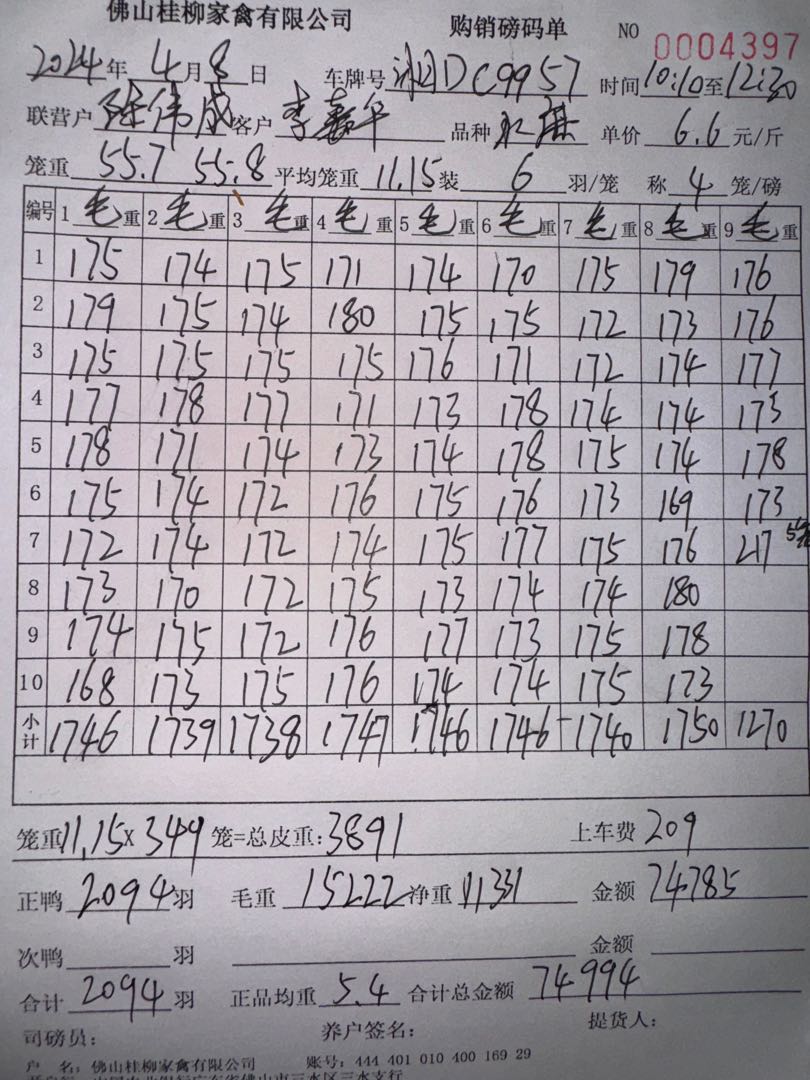 佛山桂柳家禽有限公司 购销磅码单 NO 0004397
2024年 4月 8日 车牌号 DC9957 时间 10:10至12:30
联营户 陆伟成 客户 李嘉华 品种 单价 6.6 元/斤
笼重 55.7 55.8 平均笼重 11.15 装 6 羽/笼 称 4 笼/磅
编号 1 毛重 2 毛重 3 毛重 4 毛重 5 毛重 6 毛重 7 毛重 8 毛重 9 毛重
1 175 174 175 171 174 170 175 179 176
2 179 175 174 180 175 175 172 173 176
3 175 175 175 175 176 171 172 174 177
4 177 178 177 171 173 178 174 174 173
5 178 171 174 173 174 178 175 174 178
6 175 174 172 176 175 176 173 169 173
7 172 174 172 174 175 177 175 176 217
8 173 170 172 175 173 174 174 180
9 174 175 172 176 177 173 175 178
10 168 173 175 176 174 174 175 173
小计 1746 1739 1738 1747 1746 1746 1740 1750 1270
笼重 11.15 X 349 笼=总皮重: 3891 上车费 209
正鸭 2094 羽 毛重 15222 净重 11331 金额 74785
次鸭 羽 金额
合计 2094 羽 正品均重 5.4 合计总金额 74994
司磅员: 养户签名: 提货人:
户 名: 佛山桂柳家禽有限公司 账号: 444 401 010 400 169 29